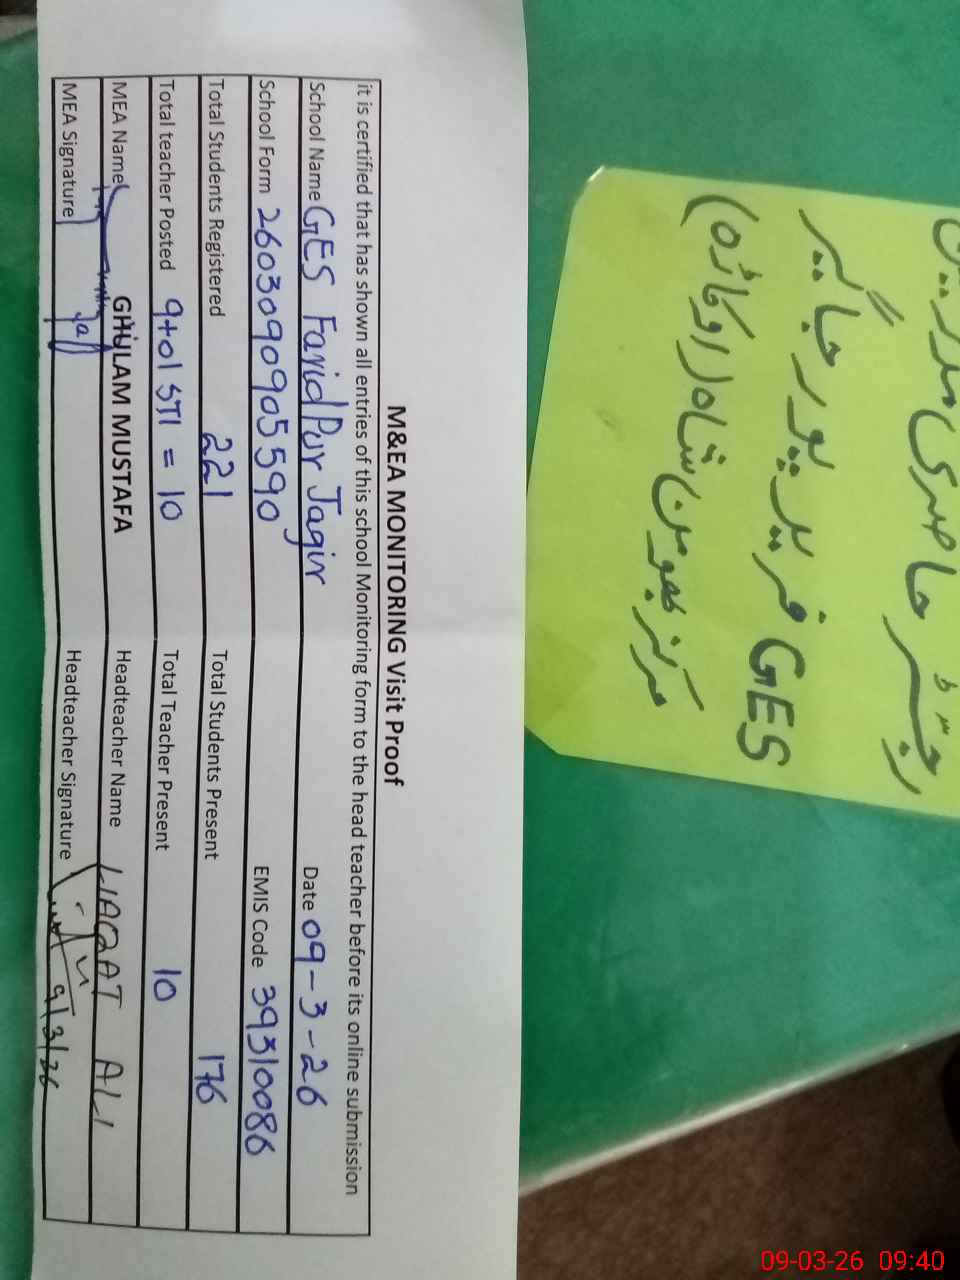 رجسٹر حاضری مدرسین
GES فرید پور جاگیر
مرکز بھومن شاہ (اوکاڑہ)
M&EA MONITORING Visit Proof
it is certified that has shown all entries of this school Monitoring form to the head teacher before its online submission
School Name GES Farid Pur Jagir Date 09-3-26
School Form 2603090905590 EMIS Code 39310086
Total Students Registered 221 Total Students Present 176
Total teacher Posted 9+01 STI = 10 Total Teacher Present 10
MEA Name GHULAM MUSTAFA Headteacher Name LIAQAT ALI
MEA Signature Headteacher Signature 9/3/26
09-03-26 09:40